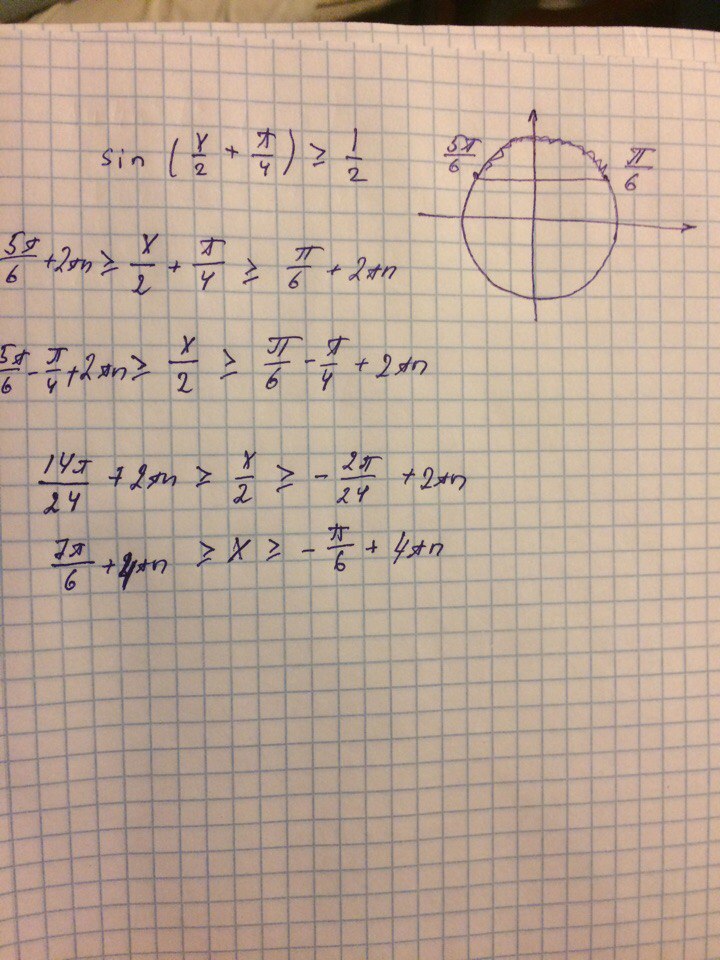 sin (x/2 + π/4) ≥ 1/2
5π/6 π/6
5π/6 + 2πn ≥ x/2 + π/4 ≥ π/6 + 2πn
5π/6 - π/4 + 2πn ≥ x/2 ≥ π/6 - π/4 + 2πn
14π/24 + 2πn ≥ x/2 ≥ - 2π/24 + 2πn
7π/6 + 4πn ≥ x ≥ - π/6 + 4πn